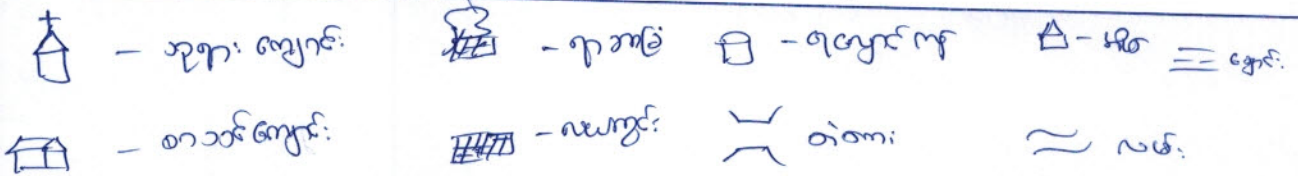 - ဘုရားကျောင်း - ရာအာမြံ - ရလျှောင်ကန် - အိမ် ချောင်း
- စာသင်ကျောင်း - လယ်ကွင်း တံတား လမ်း